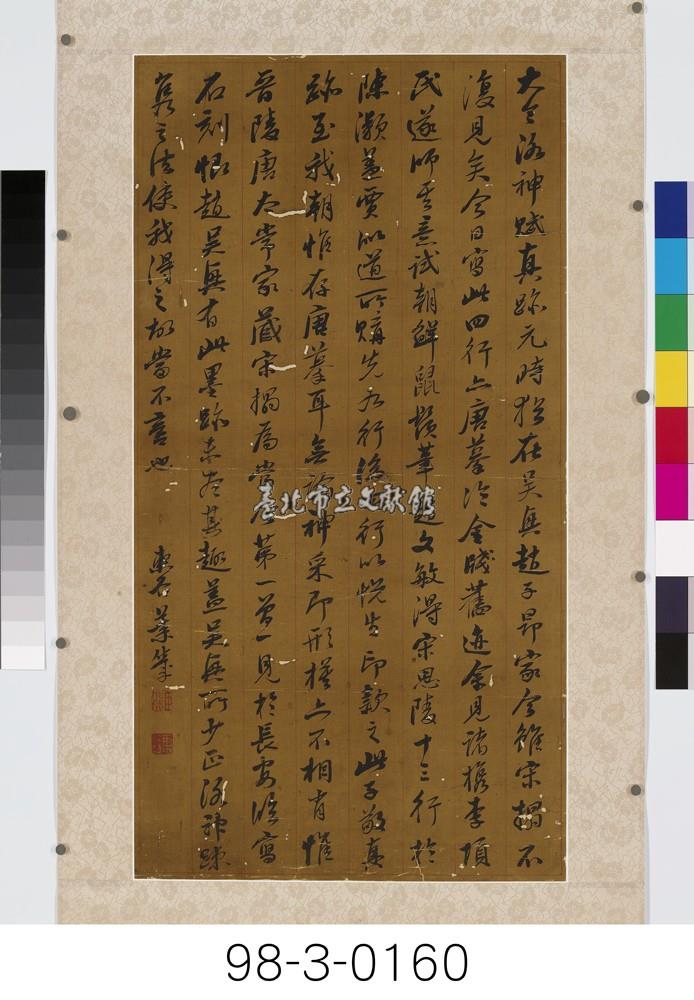 大令洛神賦真跡元時猶在吳興趙子昂家今雖宋搨不
復見矣今日寫此四行亦唐摹冷金牋舊迹余見諸檇李項
氏遂師其意試朝鮮鼠鬚筆趙文敏得宋思陵十三行於
陳灝蓋賈似道所購先九行後四行以悅生印款之此子敬真
跡至我朝惟存唐摹耳無論神采即形模亦不相肖惟
晉陵唐太常家藏宋搨為當今第一曾一見於長安臨寫
石刻恨趙吳興有此墨跡未盡其趣蓋吳興所少正洛神疎
雋之法使我得之故當不啻也
臺北市立文獻館
98-3-0160